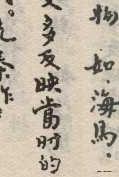 物。如：海馬。
多反映當时的